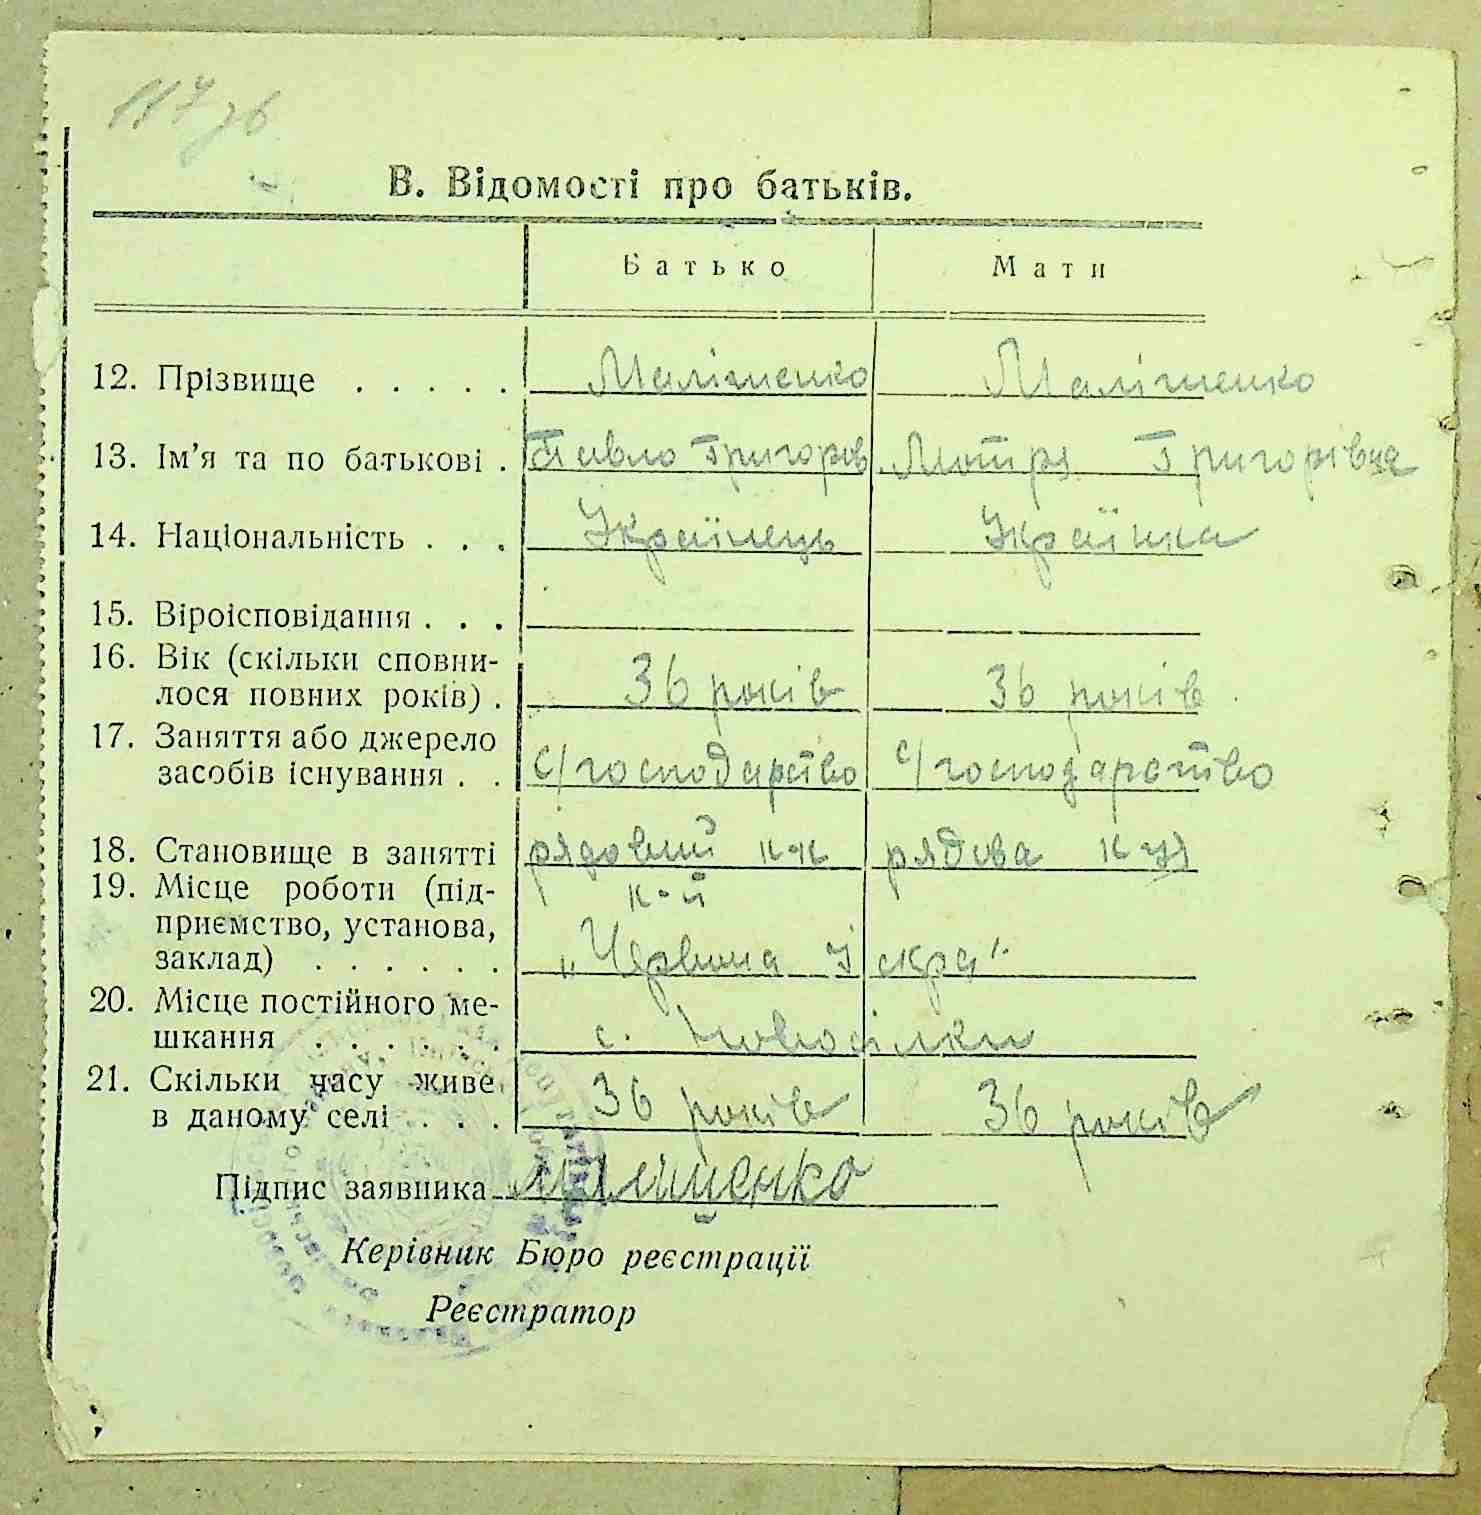 117 зв
В. Відомості про батьків.
Батько Мати
12. Прізвище . . . . . Маліженко Маліженко
13. Ім'я та по батькові . Павло Григоров. Мотря Григорівна
14. Національність . . . Українець Українка
15. Віроісповідання . . .
16. Вік (скільки сповни-
лося повних років) . 36 років 36 років
17. Заняття або джерело
засобів існування . . с/господарство с/господарство
18. Становище в занятті рядовий к-к рядова к-ця
19. Місце роботи (під- к-п
приємство, установа,
заклад) . . . . . . „Червона Іскра“
20. Місце постійного ме-
шкання . . . . . . с. Новосілки
21. Скільки часу живе
в даному селі . . . 36 років 36 років
Підпис заявника
Керівник Бюро реєстрації
Реєстратор